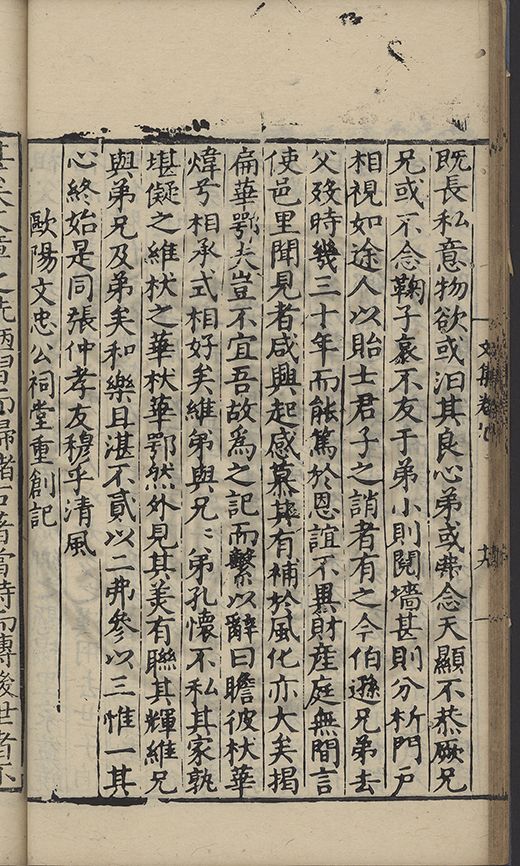 既長私意物欲或汩其良心弟或弗念天顯不恭厥兄
兄或不念鞠子哀不友于弟小則鬩墻甚則分析門戶
相視如途人以貽士君子之誚者有之今伯遜兄弟去
父歿時幾三十年而能篤於恩誼不異財產庭無間言
使邑里聞見者咸興起感慕其有補於風化亦大矣揭
扁華鄂夫豈不宜吾故為之記而繫以辭曰瞻彼杕華
煒兮相承式相好矣維弟與兄〻弟孔懷不私其家孰
堪儗之維杕之華杕華鄂然外見其美有聯其輝維兄
與弟兄及弟矣和樂且湛不貳以二弗參以三惟一其
心終始是同張仲孝友穆乎清風
歐陽文忠公祠堂重創記
文集卷